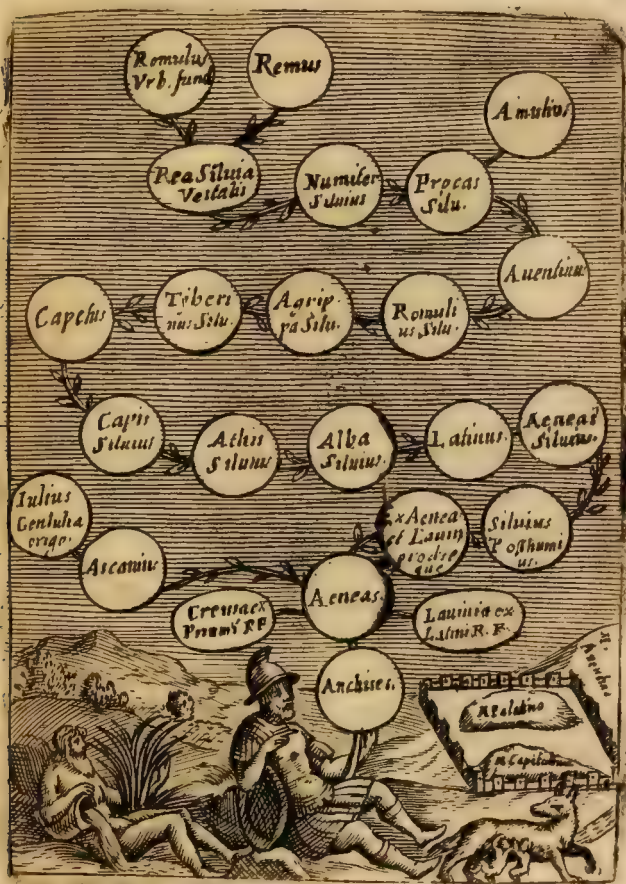 Romulus
Vrb. fund
Remus
Amulius
Rea Siluia
Vestalis
Numiter
Siluius
Procas
Silu.
Auentinus
Capetus
Tyberi
nus Silu.
Agrip
pa Silu.
Romuli
us Silu.
Capis
Siluius
Athis
Siluius
Alba
Siluius.
Latinus.
Aeneas
Siluius.
Iulius
Gentulia
origo.
Ascanius
ex Aenea
et Lauin
Siluius
Posthumi
us.
Aeneas.
Creusa ex
Priami R F
Lauinia ex
Latini R. F.
Anchises.
M.
Auentinus
M Palatino
M Capitoli